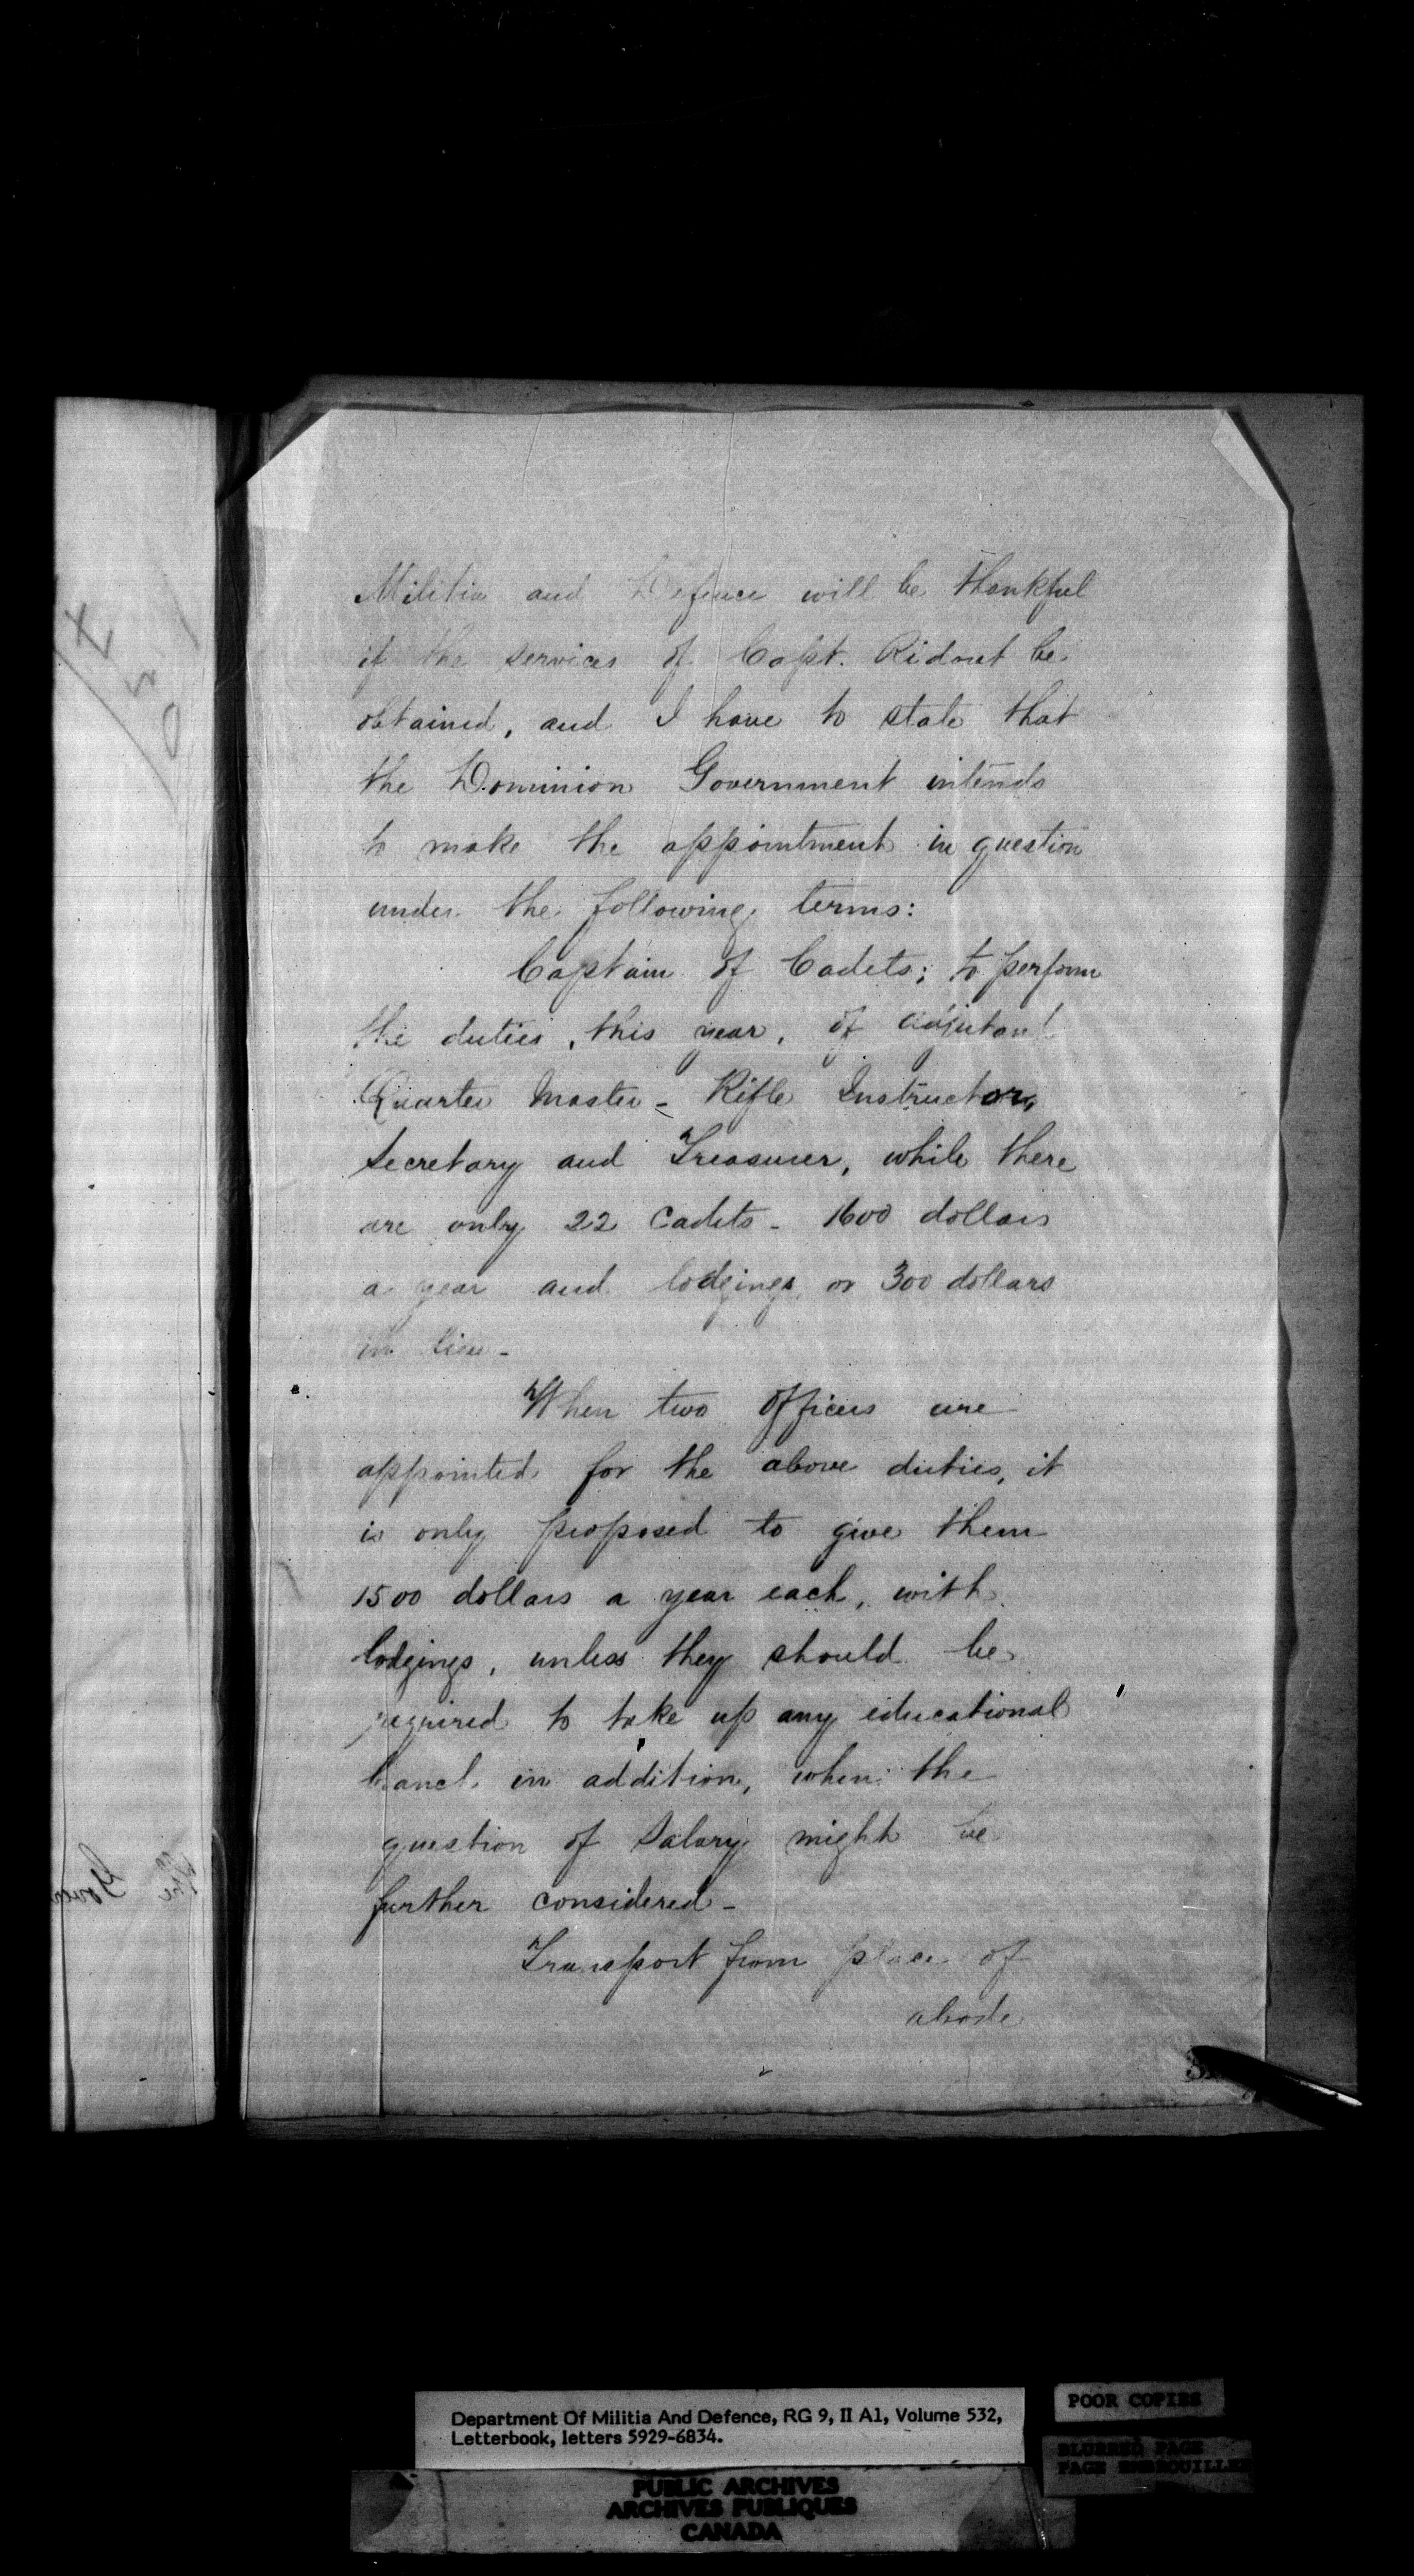 Militia and Defence will be thankful
if the services of Capt. Ridout be
obtained, and I have to state that
the Dominion Government intends
to make the appointment in question
under the following terms:
Captain of Cadets; to perform
the duties, this year, of adjutant
Quarter Master - Rifle Instructor,
Secretary and Treasurer, while there
are only 22 Cadets - 1600 dollars
a year and lodgings or 300 dollars
in lieu -
When two officers are
appointed for the above duties, it
is only proposed to give them
1500 dollars a year each, with
lodgings, unless they should be
required to take up any educational
branch in addition, when the
question of Salary might be
further considered -
Transport from place of
abode
Department Of Militia And Defence, RG 9, II A1, Volume 532,
Letterbook, letters 5929-6834.
POOR COPIES
BLURRED PAGE
PAGE EMBROUILLEE
PUBLIC ARCHIVES
ARCHIVES PUBLIQUES
CANADA